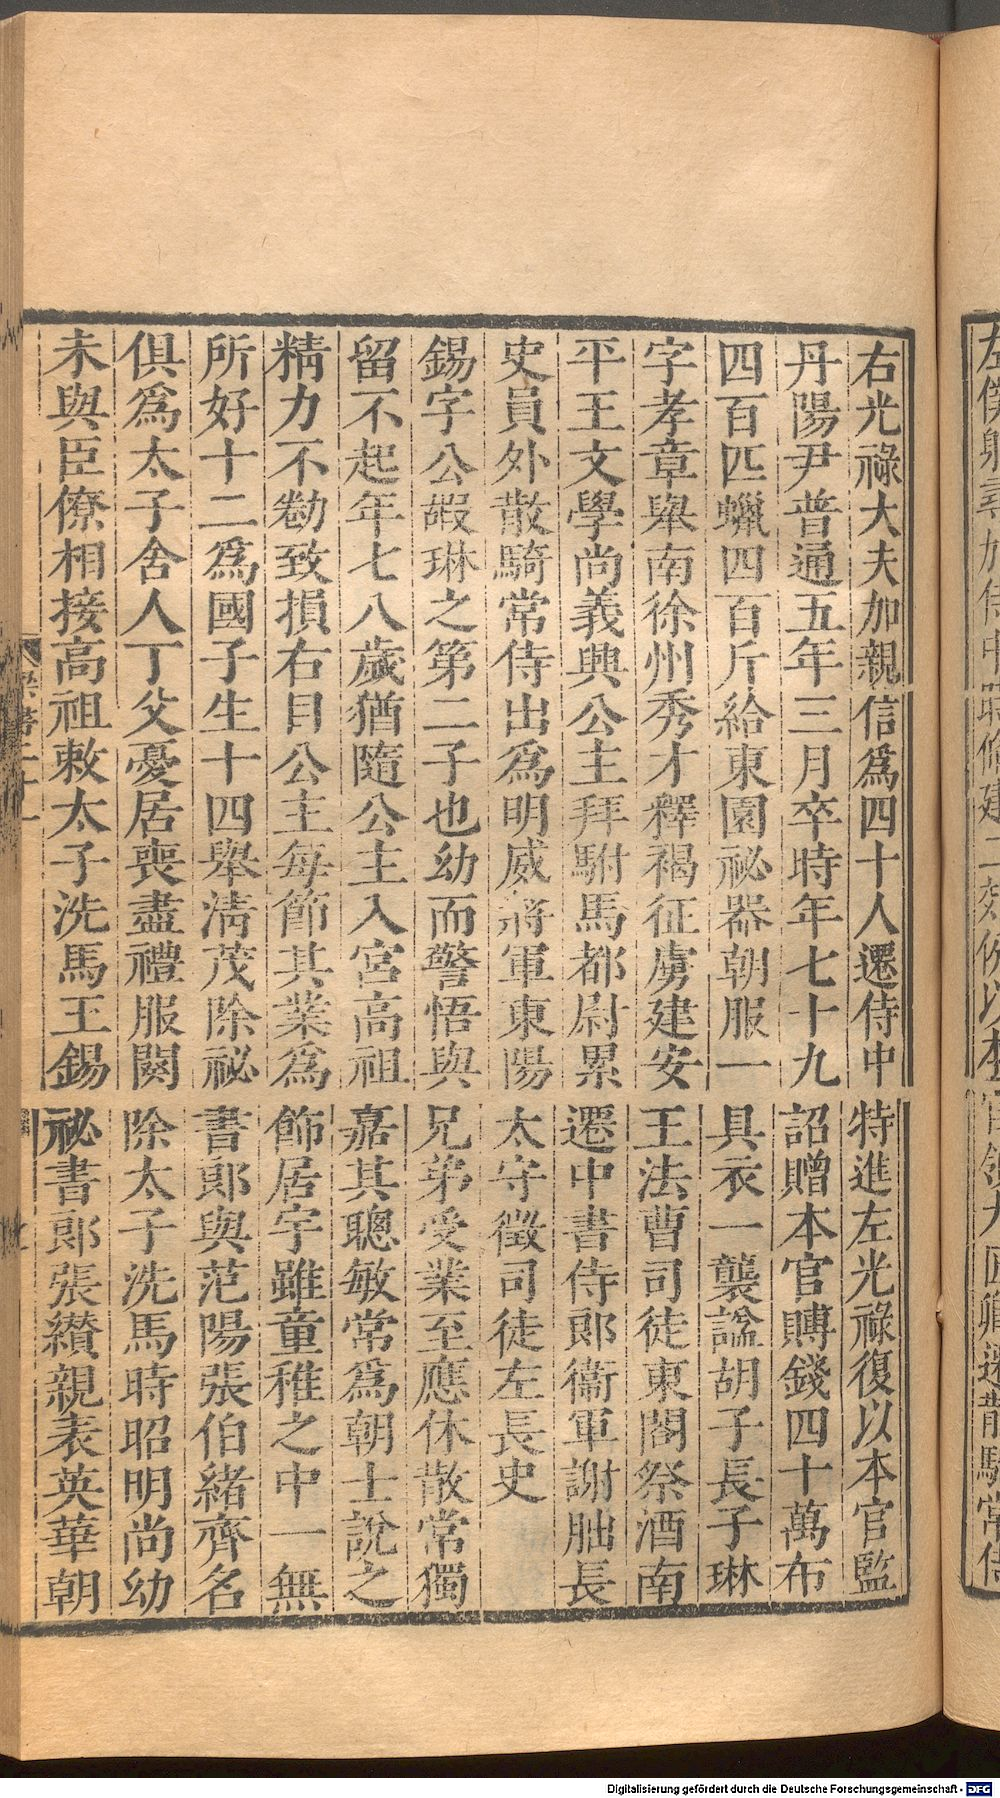 右光祿大夫加親信爲四十人遷侍中特進左光祿復以本官監
丹陽尹普通五年三月卒時年七十九詔贈本官賻錢四十萬布
四百匹蠟四百斤給東園祕器朝服一具衣一襲諡胡子長子琳
字孝章舉南徐州秀才釋褐征虜建安王法曹司徒東閤祭酒南
平王文學尚義興公主拜駙馬都尉累遷中書侍郎衞軍謝朏長
史員外散騎常侍出爲明威將軍東陽太守徵司徒左長史
錫字公嘏琳之第二子也幼而警悟與兄弟受業至應休散常獨
留不起年七八歲猶隨公主入宮高祖嘉其聰敏常爲朝士說之
精力不勌致損右目公主每節其業爲飾居宇雖童稚之中一無
所好十二爲國子生十四舉清茂除祕書郎與范陽張伯緒齊名
俱爲太子舍人丁父憂居喪盡禮服闋除太子洗馬時昭明尚幼
未與臣僚相接高祖敕太子洗馬王錫祕書郎張纘親表英華朝
Digitalisierung gefördert durch die Deutsche Forschungsgemeinschaft - DFG